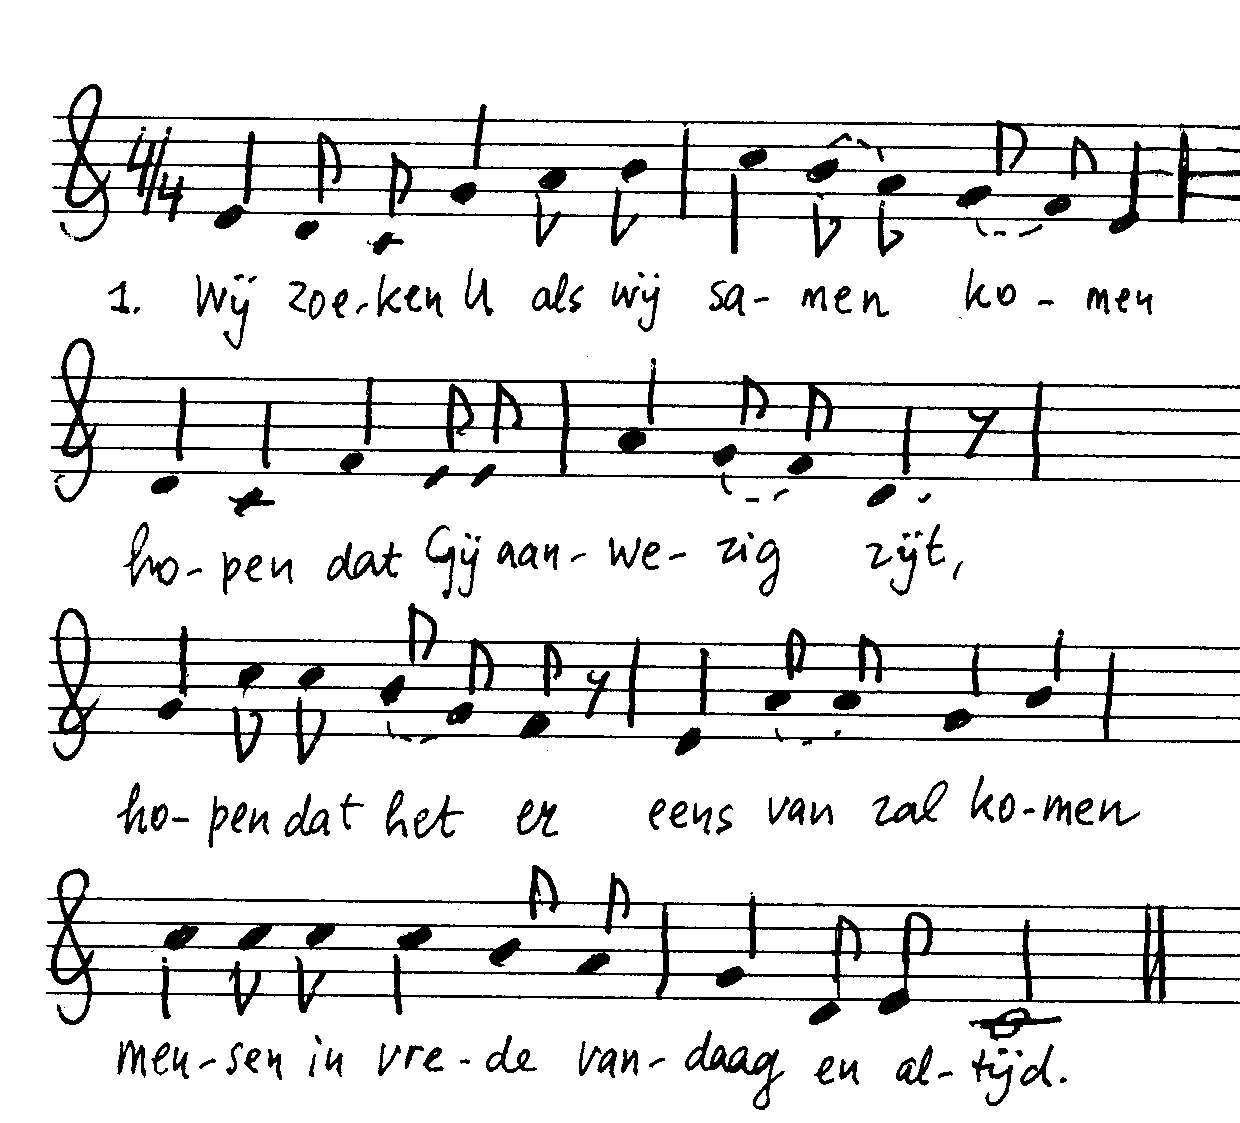 4/4
1. Wij zoe-ken U als wij sa- men ko - men
ho- pen dat Gij aan- we- zig zijt,
ho- pen dat het er eens van zal ko-men
men-sen in vre-de van-daag en al-tijd.